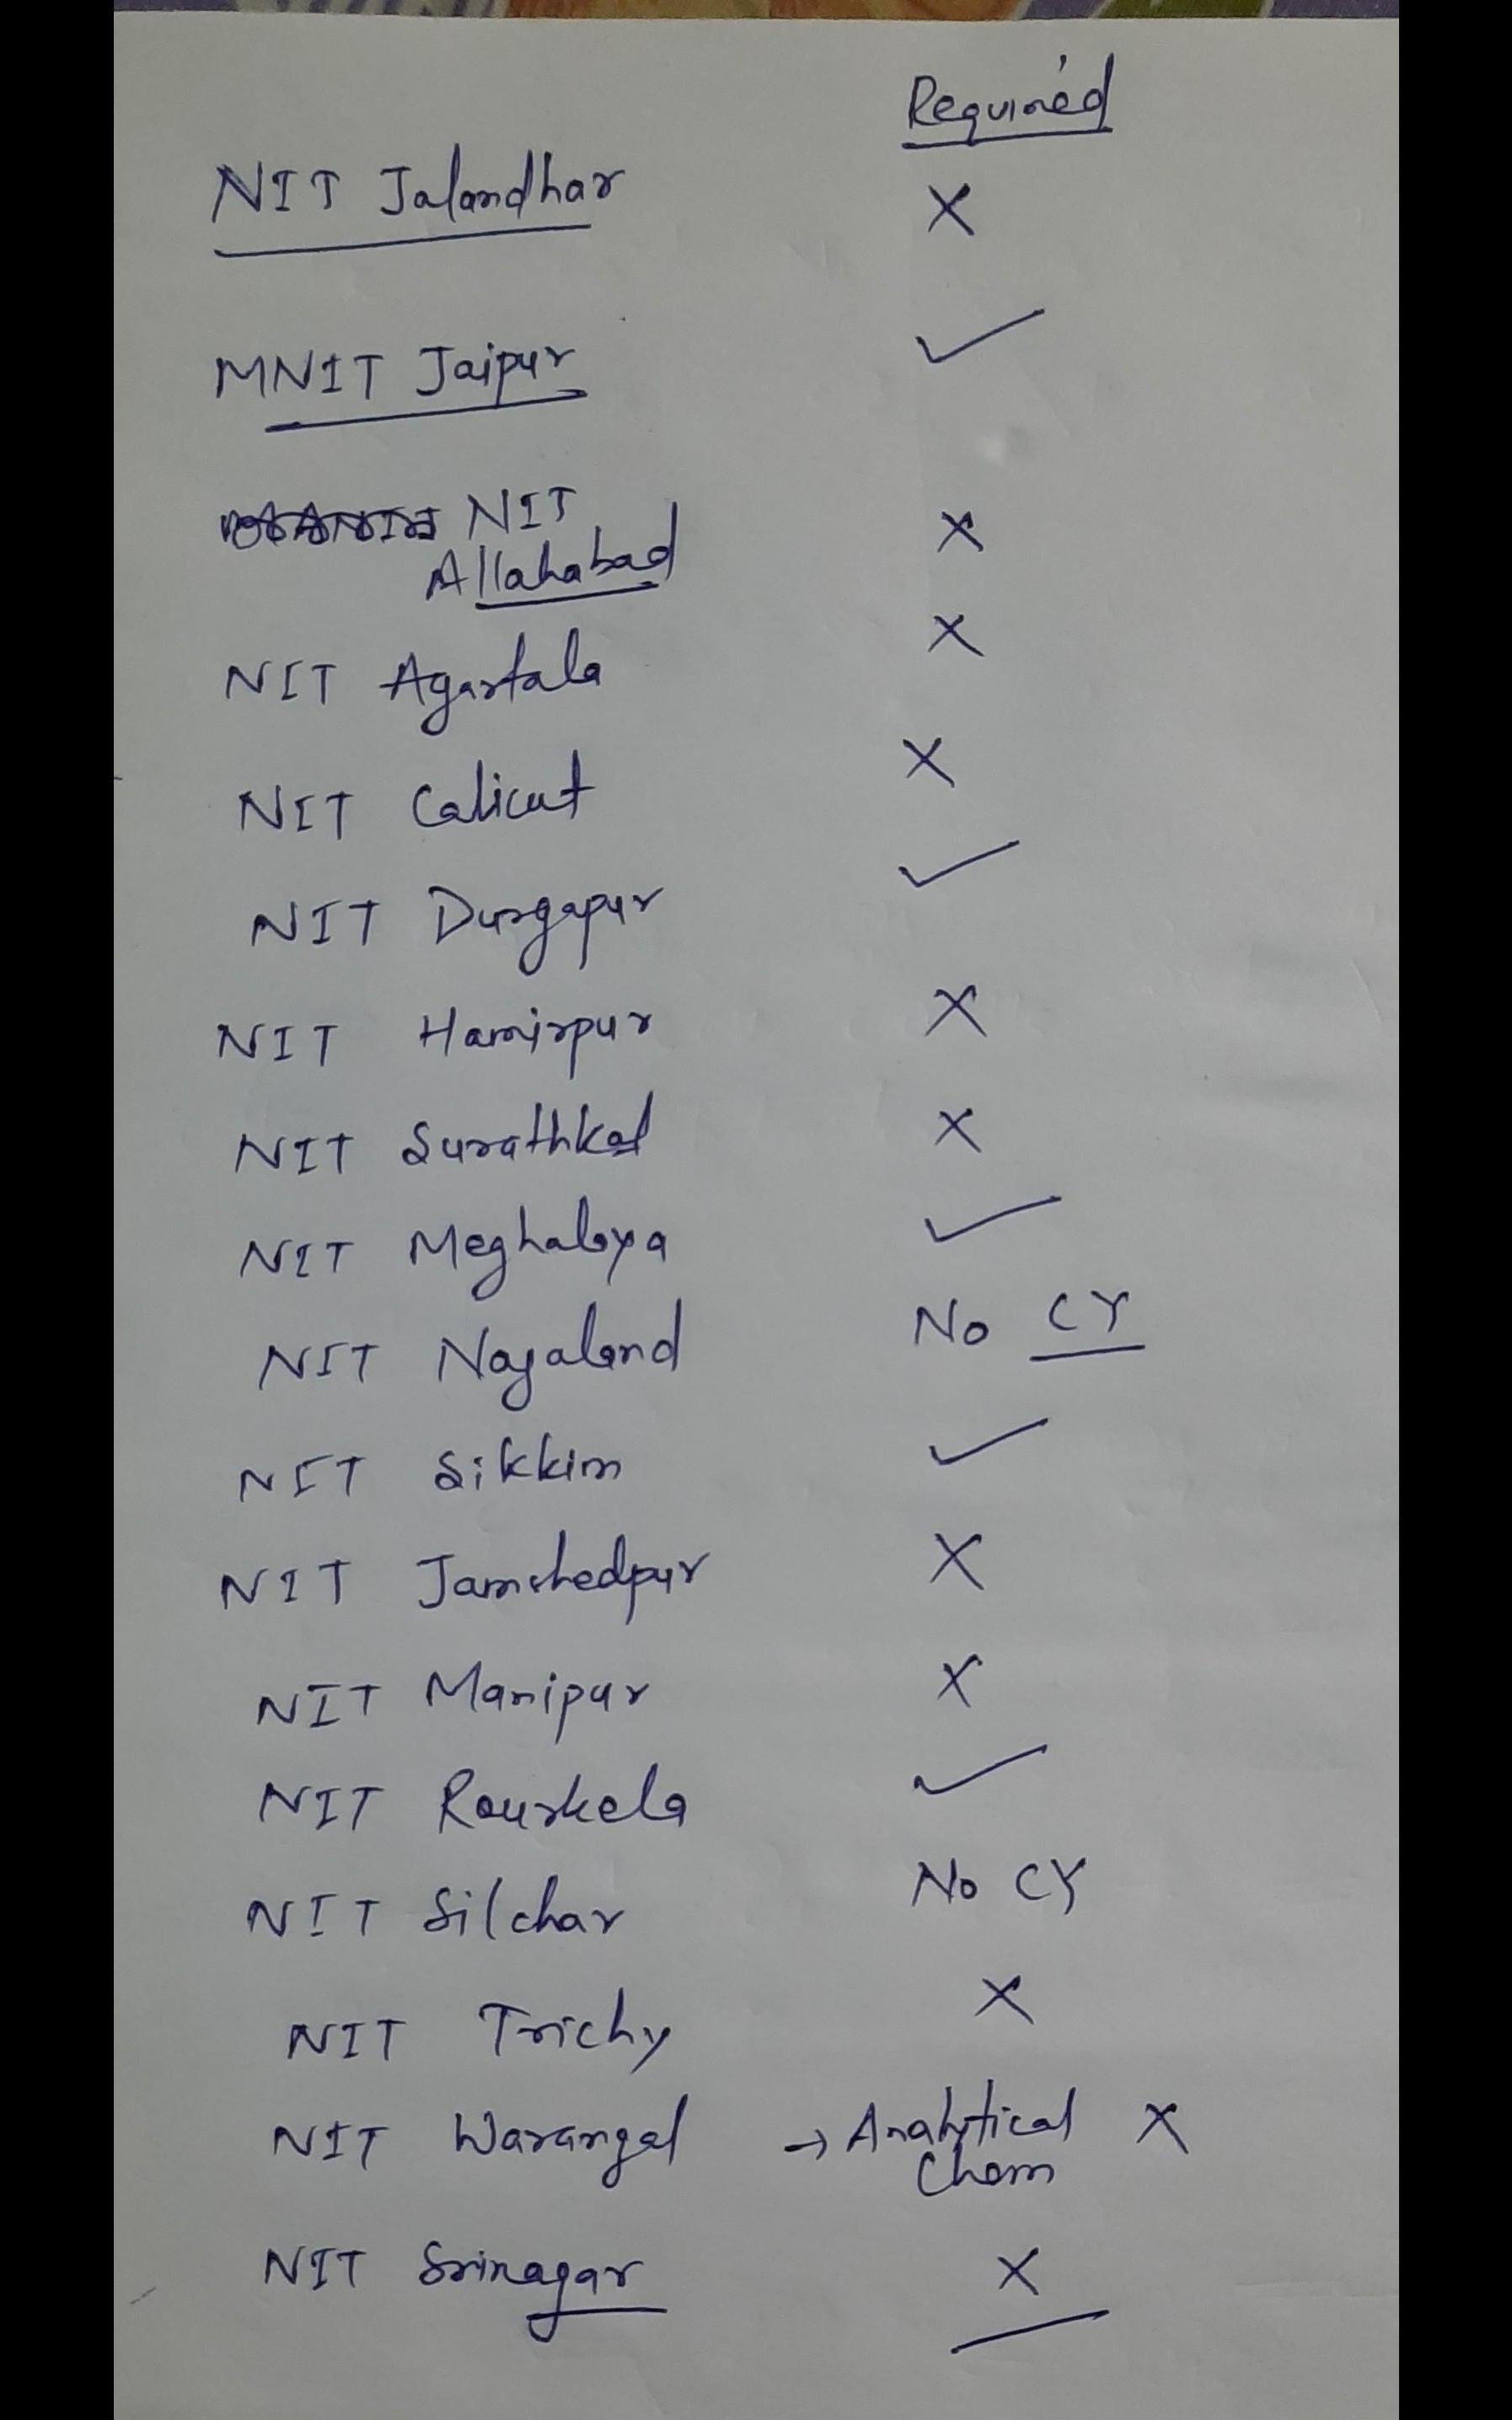 Required
NIT Jalandhar X
MNIT Jaipur ✓
NIT
Allahabad X
NIT Agartala X
NIT Calicut X
NIT Durgapur ✓
NIT Hamirpur X
NIT Surathkal X
NIT Meghalaya ✓
NIT Nagaland No CY
NIT Sikkim ✓
NIT Jamshedpur X
NIT Manipur X
NIT Rourkela ✓
NIT Silchar No CY
NIT Trichy X
NIT Warangal → Analytical X
Chem
NIT Srinagar X